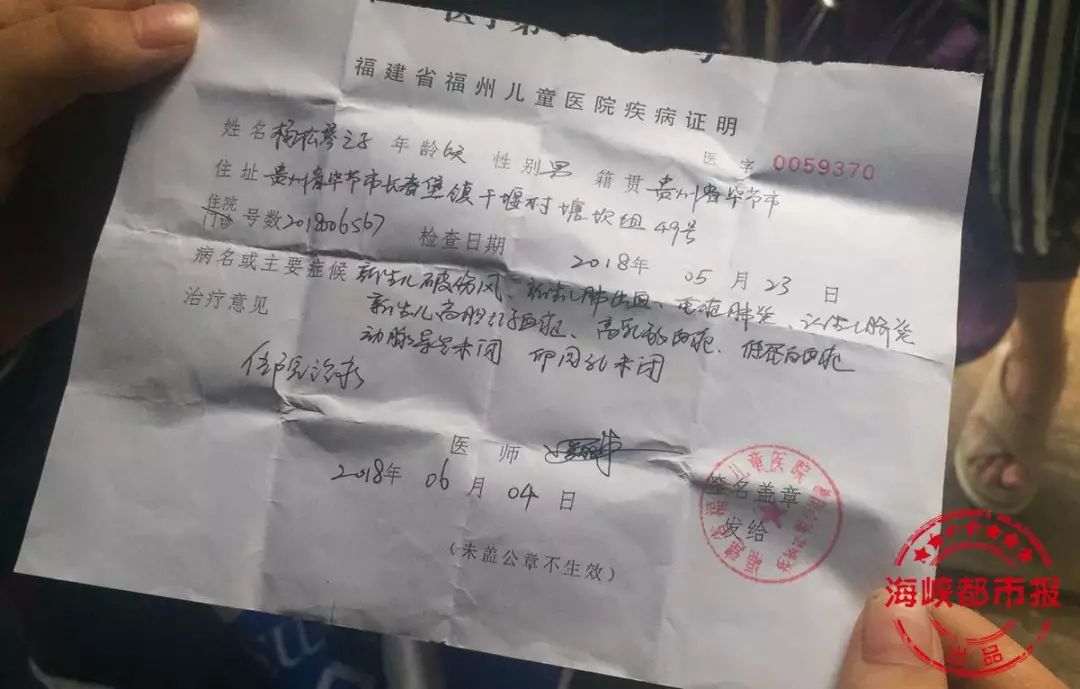 福建省福州儿童医院疾病证明
医字 0059370
姓名 杨松琴之子 年龄 6天 性别 男 籍贯 贵州省毕节市
住址 贵州省毕节市长春堡镇干堰村塘坎组49号
住院
门诊 号数 201806567 检查日期 2018年 05月 23日
病名或主要症候 新生儿破伤风、新生儿肺出血、重症肺炎、新生儿脐炎
治疗意见 新生儿高胆红素血症、高乳酸血症、低蛋白血症
动脉导管未闭 卵圆孔未闭
住院治疗
医师
2018年 06月 04日
签名盖章
发给
(未盖公章不生效)
儿童医院
海峡都市报
出品